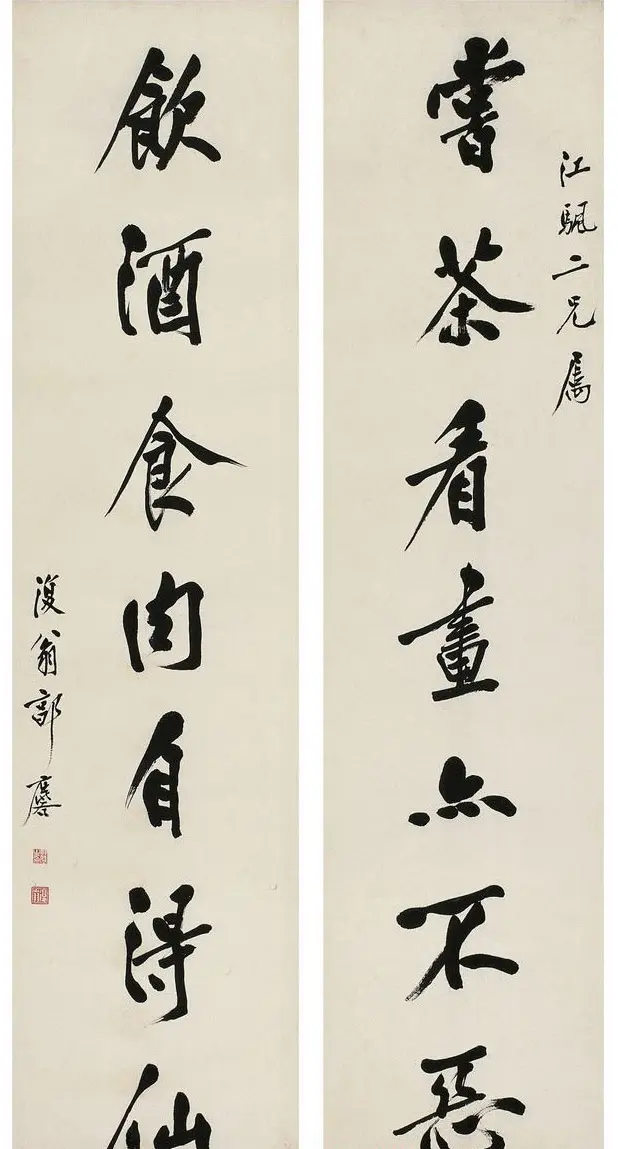 江颿二兄属
嘗茶看畫亦不惡
飲酒食肉自得仙
復翁郭麐